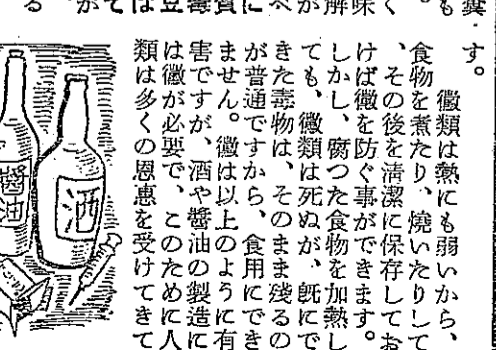 す。
黴類は熱にも弱いから、
食物を煮たり、燒いたりして
、その後を清潔に保存してお
けば黴を防ぐ事ができます。
しかし、腐つた食物を加熱し
ても、黴類は死ぬが、旣にで
きた毒物は、そのまま殘るの
が普通ですから、食用にでき
ません。黴は以上のように有
害ですが、酒や醬油の製造に
は黴が必要で、このために人
類は多くの恩惠を受けてきて
酒
醬油